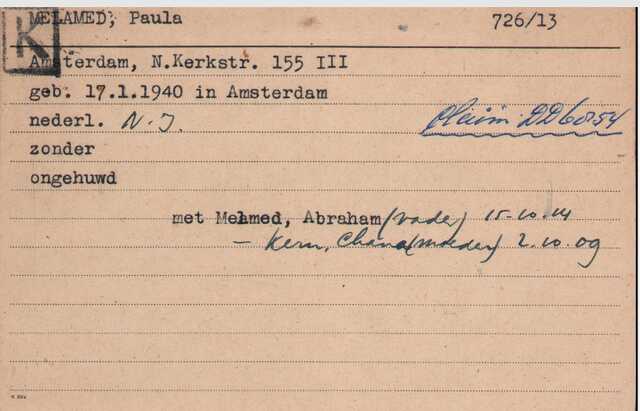 MELAMED, Paula 726/13
K
Amsterdam, N.Kerkstr. 155 III
geb. 17.1.1940 in Amsterdam
nederl. N.I.
zonder
ongehuwd
met Melamed, Abraham (vader) 15-10-14
- Kern, Chana (moeder) 2.10.09